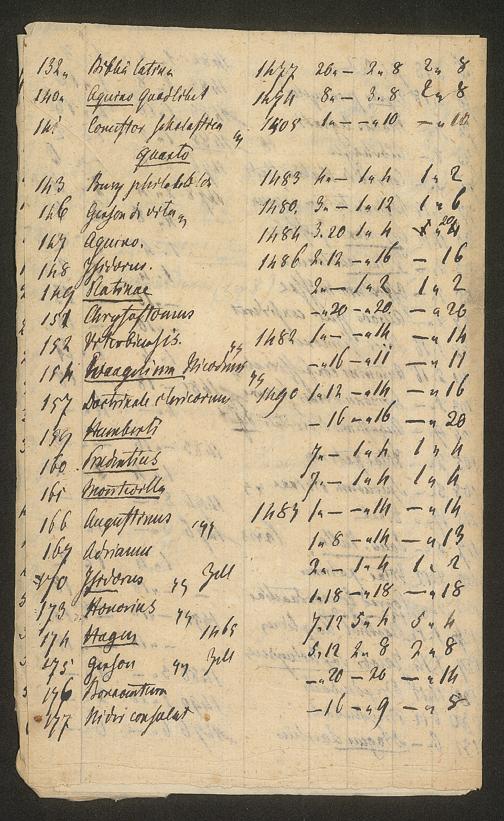 132. Biblia latina 1477 26 " — 2 " 8 2 " 8
140 " Aquino Quodlibet 1474 8 " — 3 . 8 2 " 8
141 Comestor scholastica 1505 1 " — — " 10 — " 10
Quarto
143 1483 4 " — 1 " 4 1 " 2
146 Gerson de vita 1480. 3 " — 1 " 12 1 " 6
147 Aquino. 1484 3.20 1 " 4
148 Isidorus. 1486 2.12 — " 16 — 16
149 Platinae 2 " — 1 " 2 1 " 2
151 Chrysostomus — " 20 — " 20 — " 20
152 1482 1 " — — " 14 — " 14
154 Evangelium Nicodemi — " 16 — " 11 — " 11
157 Doctrinale clericorum 1490 1 " 12 — " 14 — " 16
159 Humberti — 16 — " 16 — " 20
160 Prudentius 7 " — 1 " 4 1 " 4
161 7 " — 1 " 4 1 " 4
166 Augustinus 1 " — — " 14 — " 14
167 Adrianus 1 " 8 — " 14 — " 13
170 Isidorus Zell 2 " — 1 " 4 1 " 2
173 Honorius 1 " 18 — " 18 — " 18
174 Hagen 1465 7.12 5 " 4 5 " 4
175 Gerson Zell 5.12 2 " 8 2 " 8
176 Bonaventura — " 20 — 20 — " 14
177 Nideri consolat — 16 — " 9 — " 8